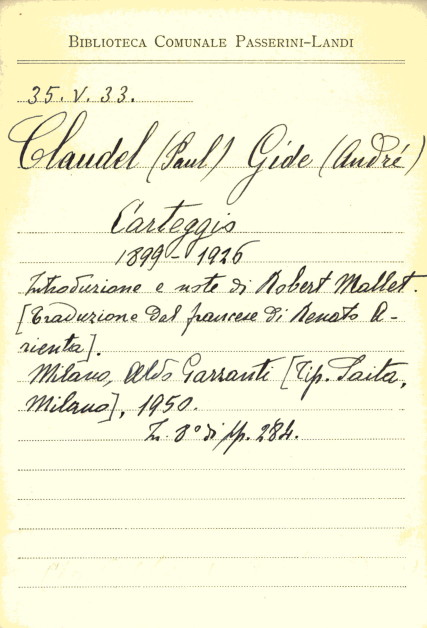 BIBLIOTECA COMUNALE PASSERINI-LANDI
35. V. 33.
Claudel (Paul) Gide (André)
Carteggio
1899 - 1926
Introduzione e note di Robert Mallet.
[Traduzione dal francese di Renato A-
rienta].
Milano, Aldo Garzanti [Tip. Saita,
Milano], 1950.
In 8° di pp. 284.